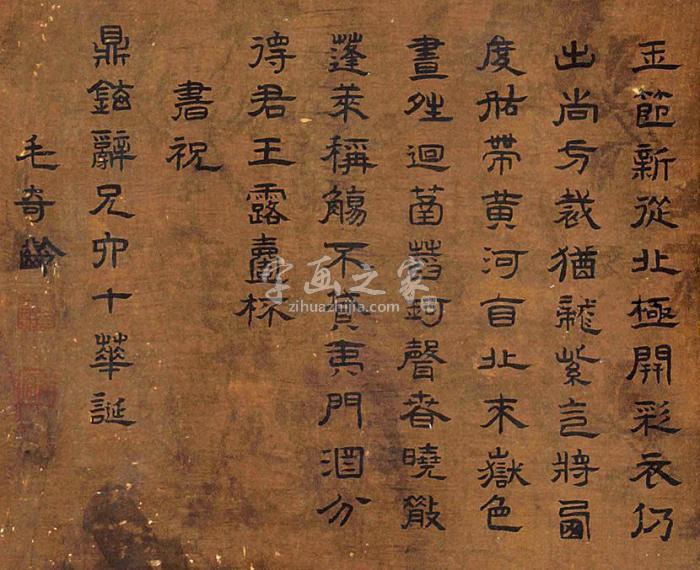 玉節新從北極開彩衣仍
出尚方裁猶龍紫气將圅
度帶黃河自北來嶽色
晝迴菡萏聲春曉散
蓬萊稱觴不貰夷門酒分
得君王露杯
書祝
鼎鉉辭兄六十華誕
毛奇齡
字画之家
zihuazhijia.com